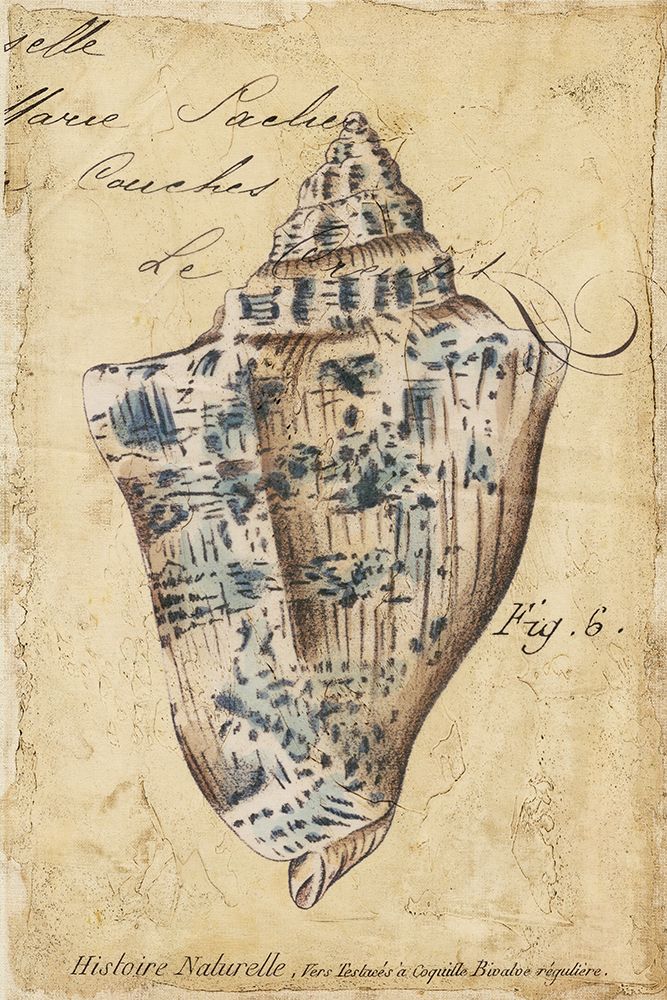 selle
Marie Pacher
Couches
Le Creusot
Fig. 6.
Histoire Naturelle, Vers Testacés à Coquille Bivalve régulière.